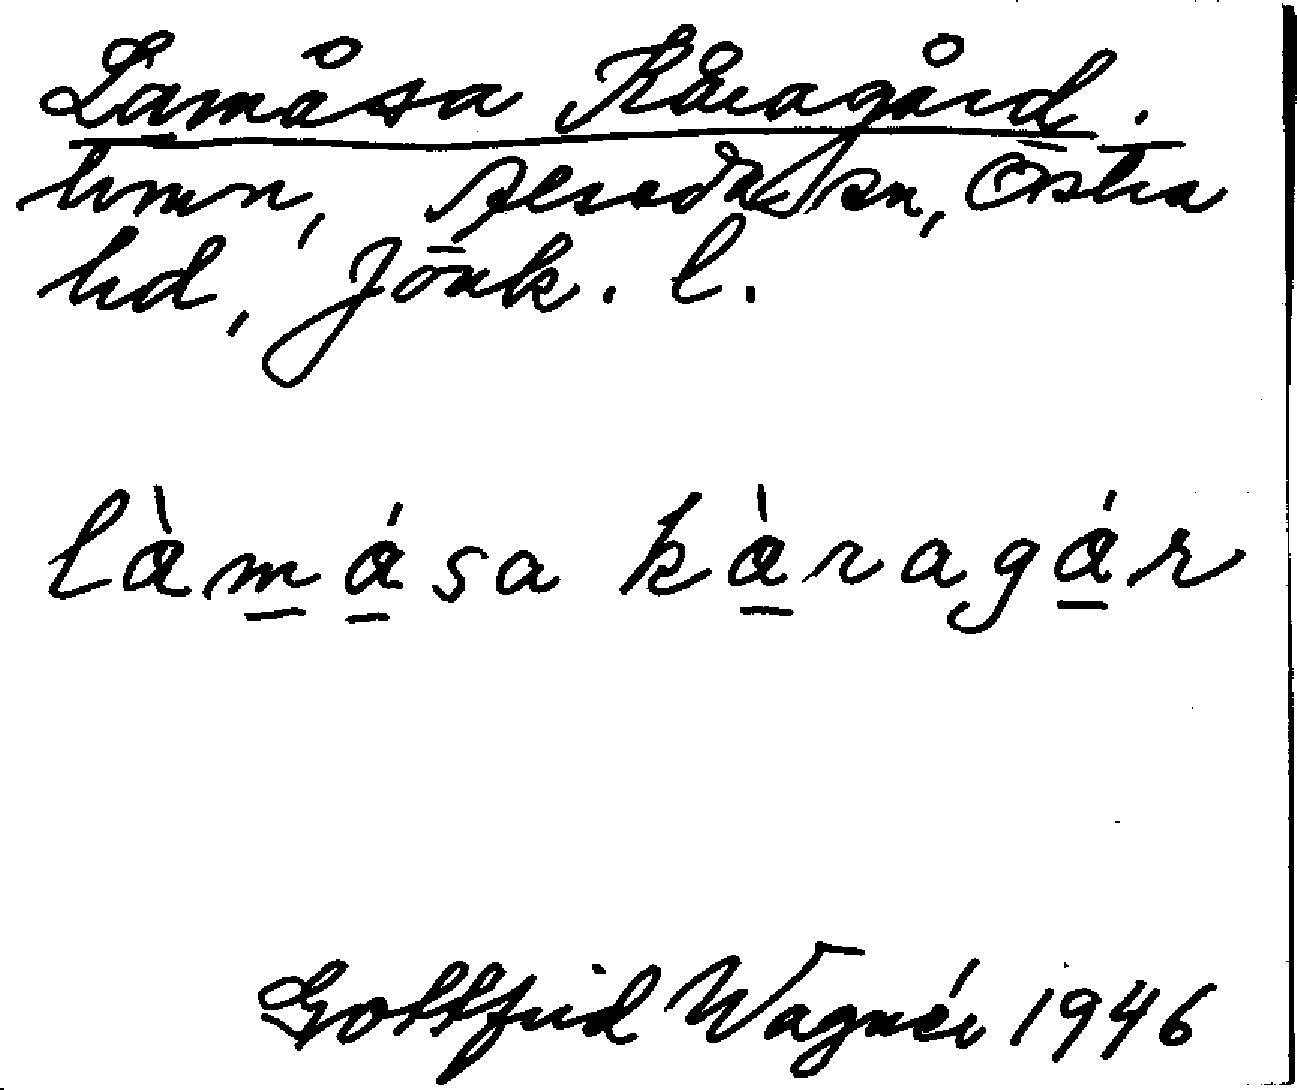 Lamåsa Kåragård.
hmn, Alseda sn, Östra
hd, Jönk. l.
làmása kàragár
Gottfrid Wagnér 1946